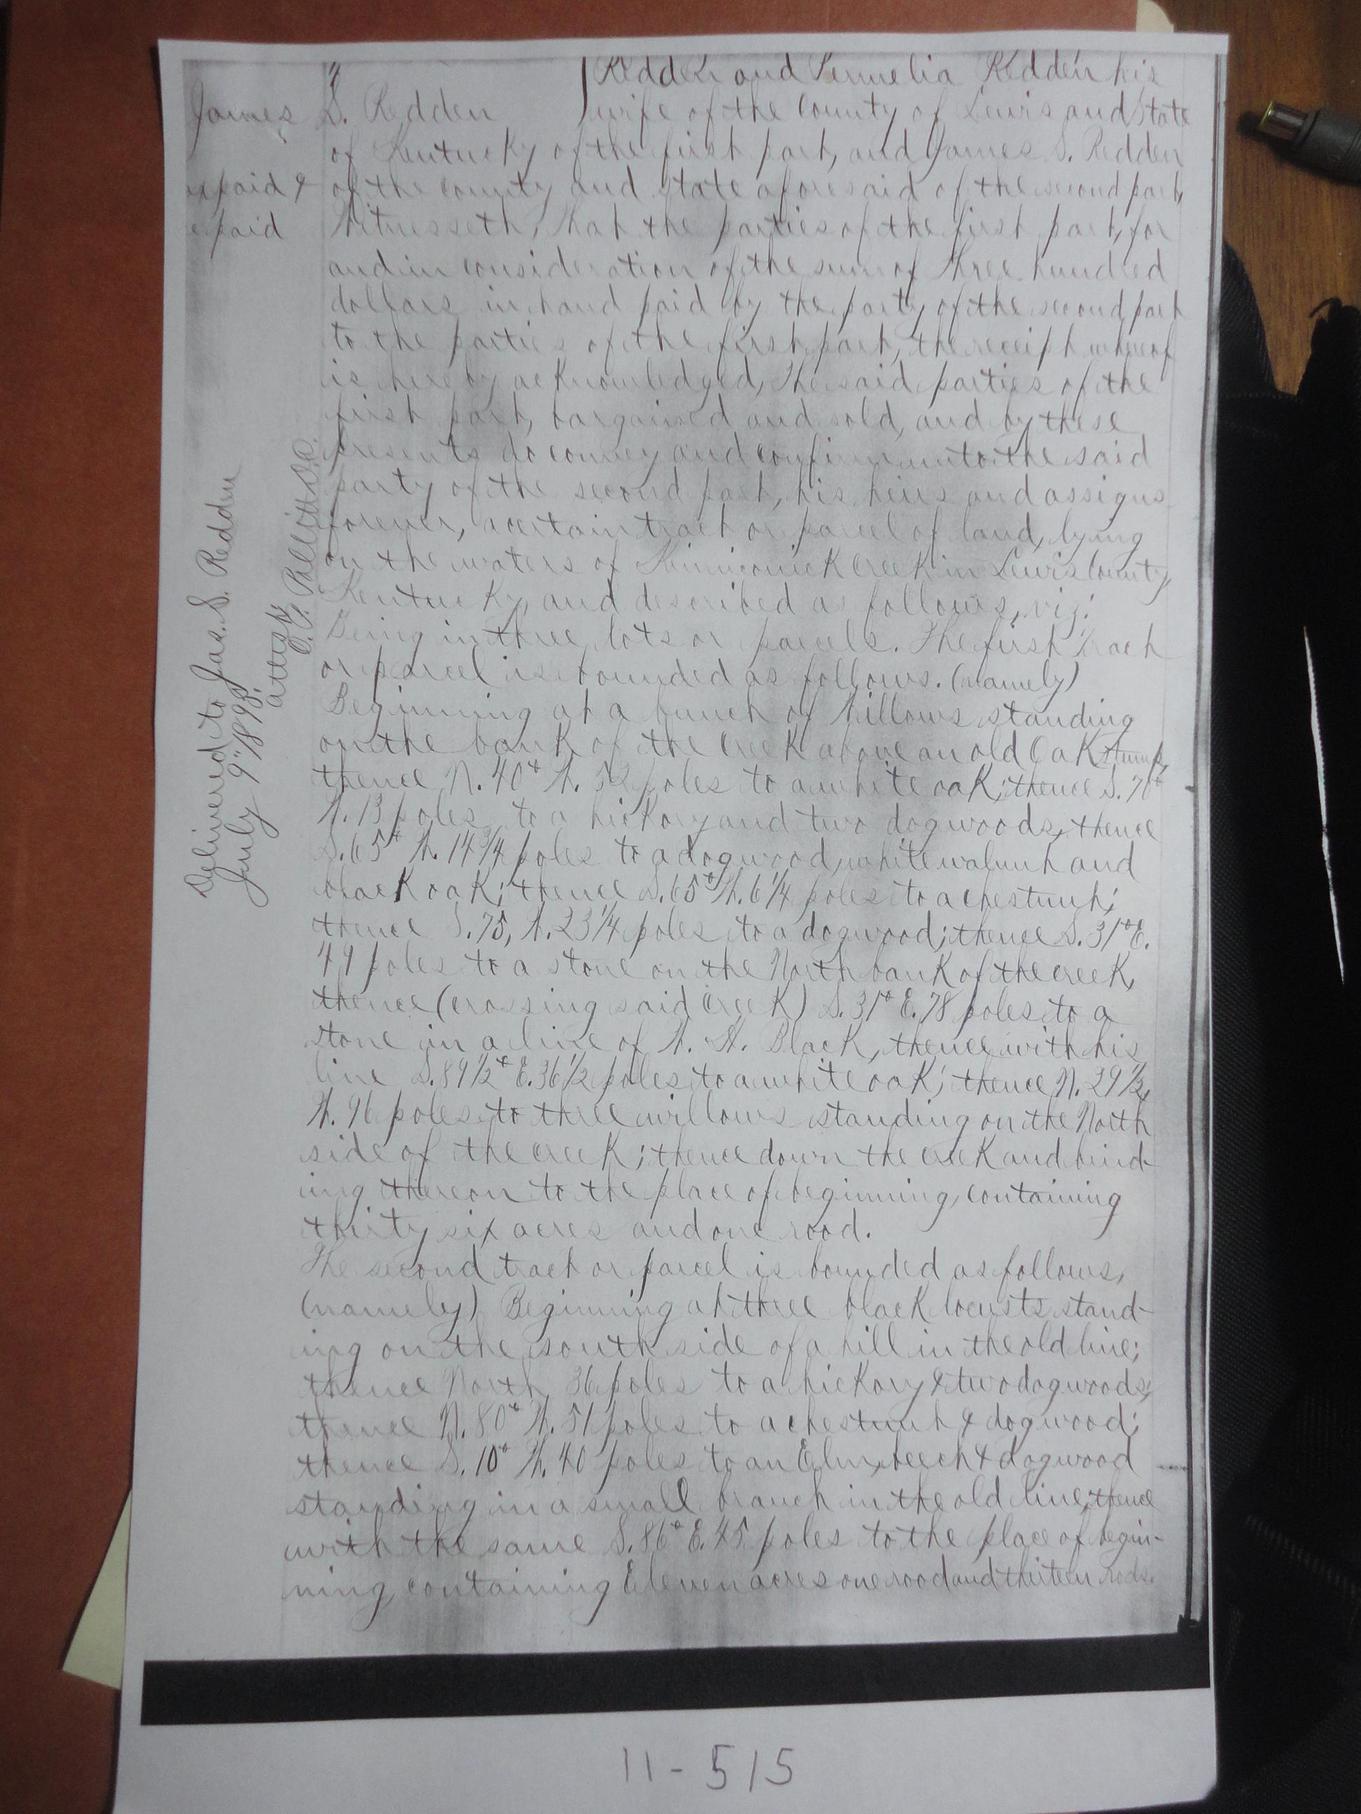 Redden and Permelia Redden his
James S. Redden wife of the County of Lewis and State
of Kentucky of the first part, and James S. Redden
paid & of the county and state aforesaid of the second part,
paid Witnesseth, That the parties of the first part, for
and in consideration of the sum of Three hundred
dollars in hand paid by the party of the second part
to the parties of the first part, the receipt whereof
is hereby acknowledged, The said parties of the
first part, bargained and sold, and by these
presents do convey and confirm unto the said
party of the second part, his heirs and assigns
forever, a certain tract or parcel of land, lying
on the waters of Kinniconick Creek in Lewis County
Kentucky, and described as follows, viz:
Being in three lots or parcels. The first Tract
or parcel is bounded as follows. (namely)
Beginning at a bunch of Willows standing
on the bank of the creek above an old Oak stump,
thence N. 40° W. 52 poles to a white oak; thence S. 70°
W. 13 poles to a hickory and two dogwoods, thence
S. 65° W. 14 3/4 poles to a dogwood, white walnut and
black oak; thence S. 65° W. 6 1/4 poles to a chestnut;
thence S. 75, W. 23 1/4 poles to a dogwood; thence S. 31° E.
49 poles to a stone on the North bank of the creek,
thence (crossing said creek) S. 31° E. 78 poles to a
stone in a line of W. W. Black, thence with his
line S. 89 1/2° E. 36 1/2 poles to a white oak; thence N. 29 1/2,
W. 96 poles to three willows standing on the North
side of the creek; thence down the creek and bind-
ing thereon to the place of beginning, containing
thirty six acres and one rood.
The second tract or parcel is bounded as follows,
(namely) Beginning at three black locusts stand-
ing on the south side of a hill in the old line;
thence North 36 poles to a hickory & two dogwoods,
thence N. 80° W. 51 poles to a chestnut & dogwood;
thence S. 10° W. 40 poles to an Elm, beech & dogwood
standing in a small branch in the old line, thence
with the same S. 86° E. 45 poles to the place of begin-
ning, containing Eleven acres one rood and thirteen rods.
Delivered to Jas. S. Redden
July 9" 1895.
attest
11-515